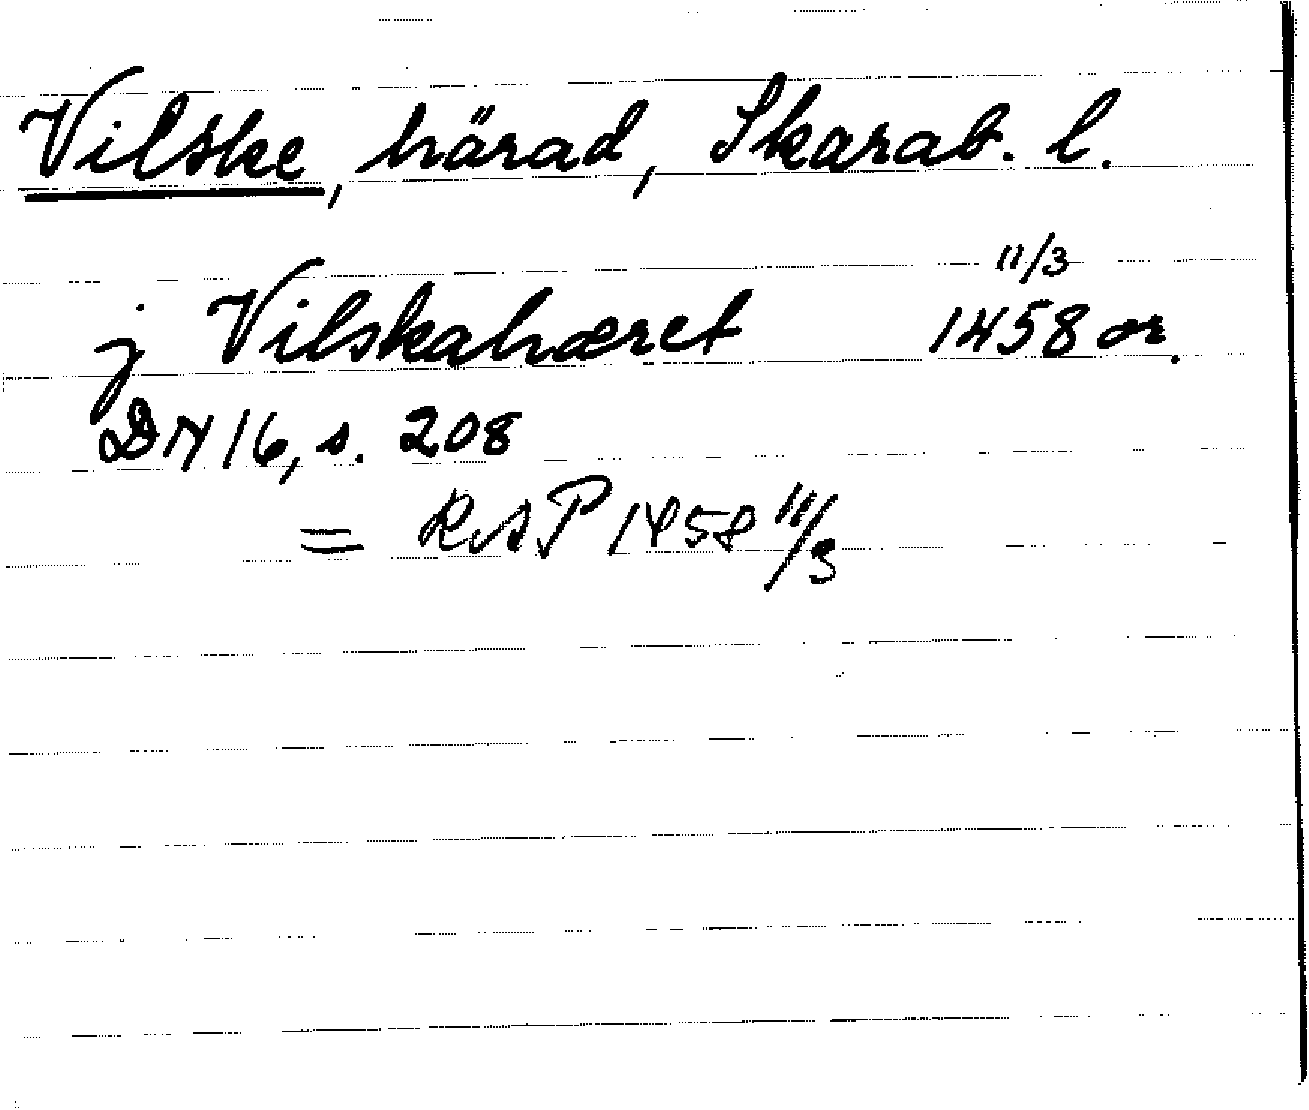 Vilske, härad, Skarab. l.
j Vilskahæret 11/3 1458 or.
DN 16, s. 208
= RAP 1458 11/3